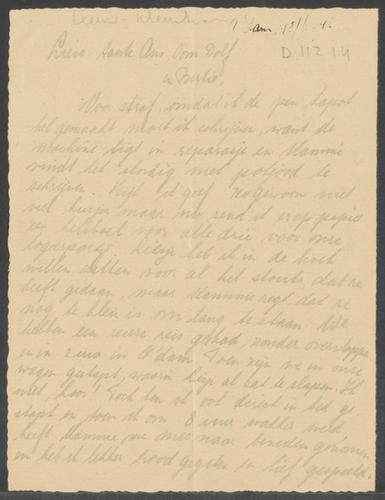 A'dam,
D 1121 4
Lieve tante Ans, Oom Dolf
en Bertie
Voor straf, omdat ik de pen kapot
heb gemaakt moet ik schrijven, want de
machine ligt in reparatie en Mammie
vindt het slordig met potlood te
schrijven. Kijk ik geef zo gewoon niet
veel kusjes maar nu zend ik er op papier
een heleboel voor alle drie voor onze
logeerpartij. heb ik in de hoek
willen zetten voor al het stouts, dat ze
heeft gedaan, maar Mammie zegt, dat ze
nog te klein is om lang te staan. We
hebben een reis gehad, zonder overstappen
en in 2 uur in A'dam. Toen zijn we in onze
wagen gestapt, waarin zat te slapen. Ik
niet, hoor! Toch ben ik ook direct in bed ge-
stapt en toen ik om 8 uur wakker werd
heeft Mammie me mee naar beneden genomen
en heb ik lekker brood gegeten en lief gespeeld.